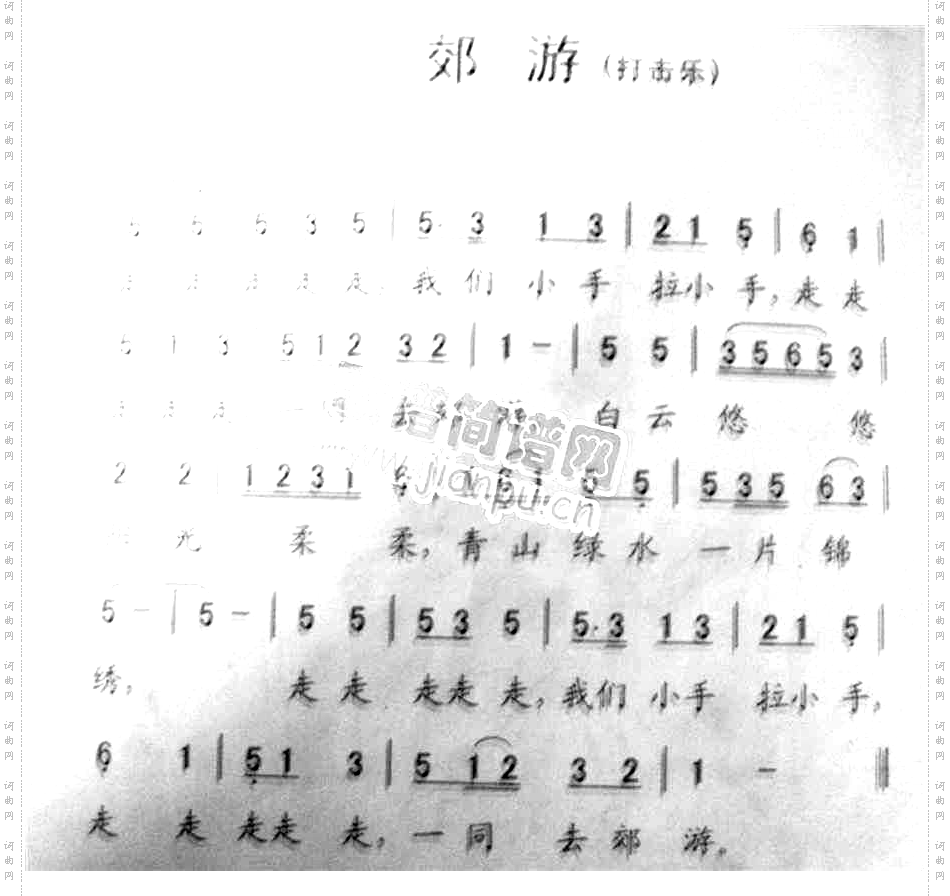 郊 游 (打击乐)
5 5 5 3 5 | 5· 3 1 3 | 2 1 5 | 6 1 |
走 走 走 走 走, 我 们 小 手 拉 小 手, 走 走
5 1 3 5 1 2 3 2 | 1 - | 5 5 | 3 5 6 5 3 |
走 走 走 一 同 去 白 云 悠 悠
2 2 1 2 3 1 5 5 | 5 3 5 6 3 |
光 柔 柔, 青 山 绿 水 一 片 锦
5 - | 5 - | 5 5 | 5 3 5 | 5· 3 1 3 | 2 1 5 |
绣, 走 走 走 走 走, 我 们 小 手 拉 小 手,
6 1 | 5 1 3 | 5 1 2 3 2 | 1 -
走 走 走 走 走, 一 同 去 郊 游。
简谱网
www.jianpu.cn
词曲网